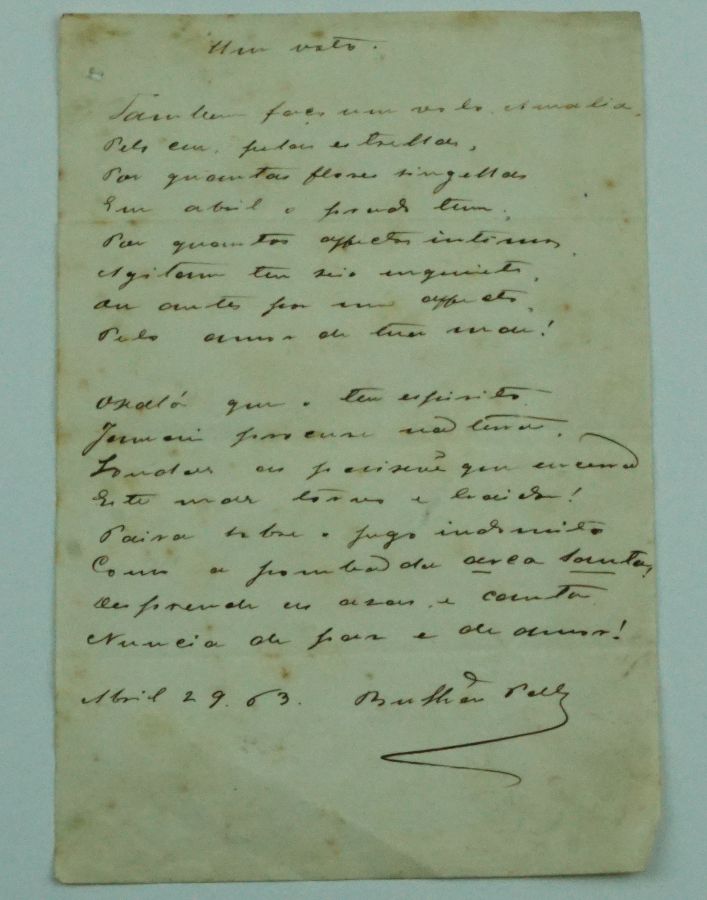 Um voto.
Tambem faço um voto, Amalia,
Pelo ceu, pelas estrellas,
Por quantas flores singellas
Em abril o prado tem;
Por quantos affectos intimos
Agitam teu seio inquieto,
Ou antes por um affecto,
Pelo amor de tua mãe!
Oxalá que o teu espirito
Jamais procure na terra
Sondar as paixões que encerra
Este mar torvo e traidor!
Paira sobre o jugo indomito
Como a pomba da arca santa,
Desprende as azas, e canta
Nuncia de paz e de amor!
Abril 29. 63. Bulhão Pato